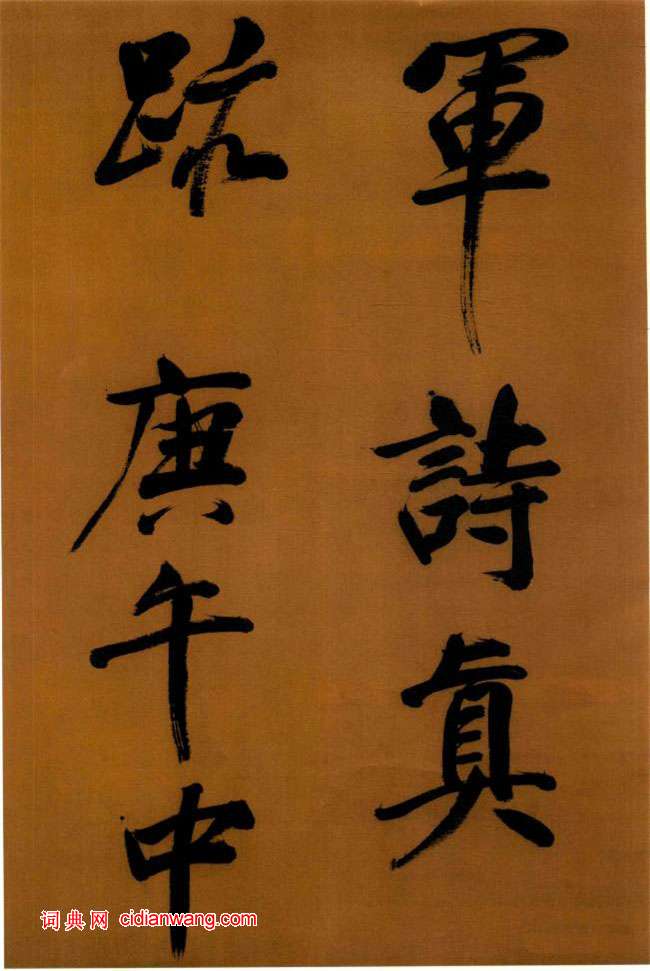 軍詩真
跡庚午中
词典网 cidianwang.com